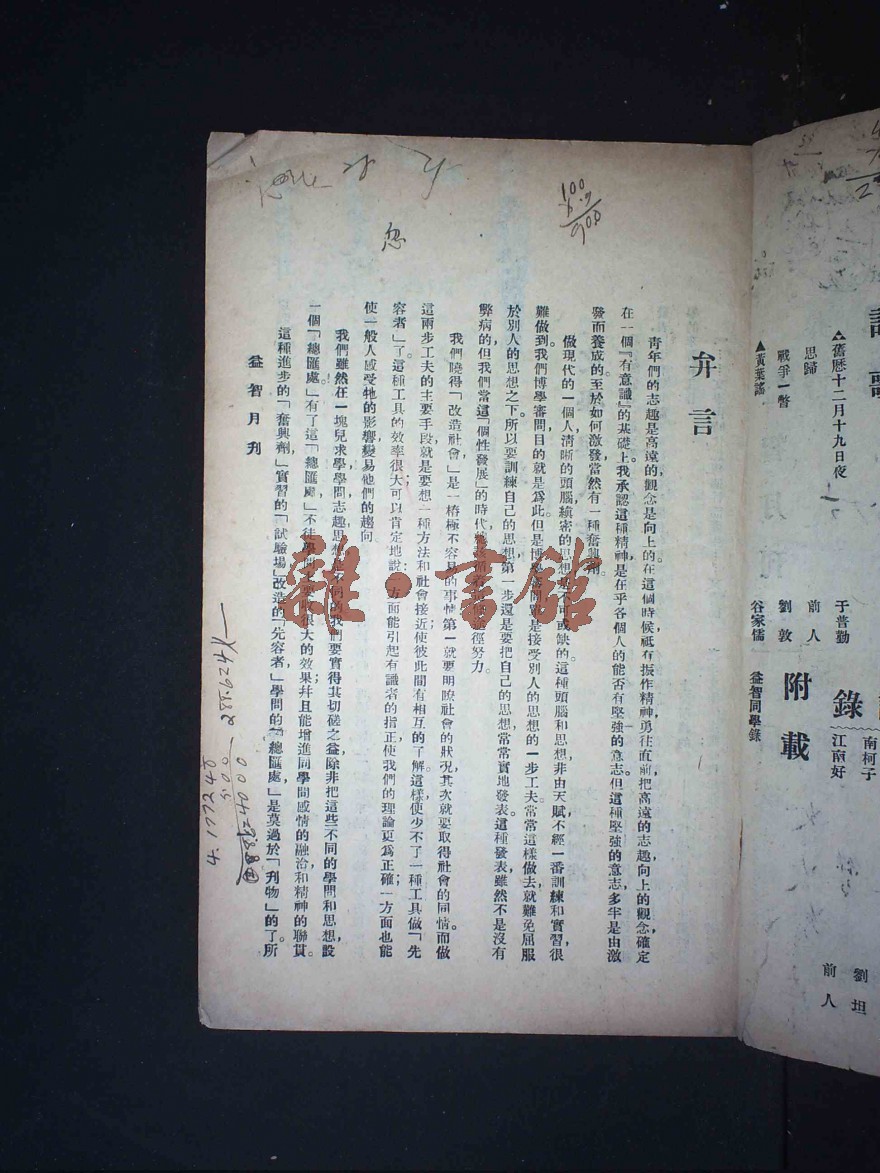 詩歌
▲舊曆十二月十九日夜
于普勤
思歸
前人
戰爭一瞥
劉敦
▲黃葉謠
谷家儒
錄
劉坦
前人
南柯子
江南好
附載
益智同學錄
弁言
靑年們的志趣是高遠的觀念是向上的在這個時候祇有振作精神勇往直前把高遠的志趣向上的觀念確定
在一個「有意識」的基礎上。我承認這種精神是在乎各個人的能否有堅強的意志。但這種堅強的意志多半是由激
發而養成的。至於如何激發當然有一種奮興劑。
做現代的一個人淸晰的頭腦縝密的思想是不可或缺的。這種頭腦和思想非由天賦不經一番訓練和實習很
難做到。我們博學審問目的就是爲此但是博學審問單是接受別人的思想的一步工夫常常這樣做去就難免屈服
於別人的思想之下。所以要訓練自己的思想第一步還是要把自己的思想常常實地發表。這種發表雖然不是沒有
弊病的但我們當這「個性發展」的時代 徑努力。
我們曉得「改造社會」是一樁極不容易的事情第一就要明瞭社會的狀況其次就要取得社會的同情。而做
這兩步工夫的主要手段就是要想一種方法和社會接近使彼此間有相互的了解。這樣便少不了一種工具做「先
容者」了。這種工具的效率很大可以肯定地說：一方面能引起有識者的指正使我們的理論更爲正確一方面也能
使一般人感受牠的影響變易他們的趨向
我們雖然在一塊兒求學學問志趣思想是不同的我們要實得其切磋之益除非把這些不同的學問和思想設
一個「總匯處」有了這「總匯處」不徒學問上要收很大的效果幷且能增進同學間感情的融洽和精神的聯貫。
這種進步的「奮興劑，」實習的「試驗場」改造的「先容者，」學問的「總匯處，」是莫過於「刋物」的了。所
益智月刋
忽
100
900
288.624
500
4.177240